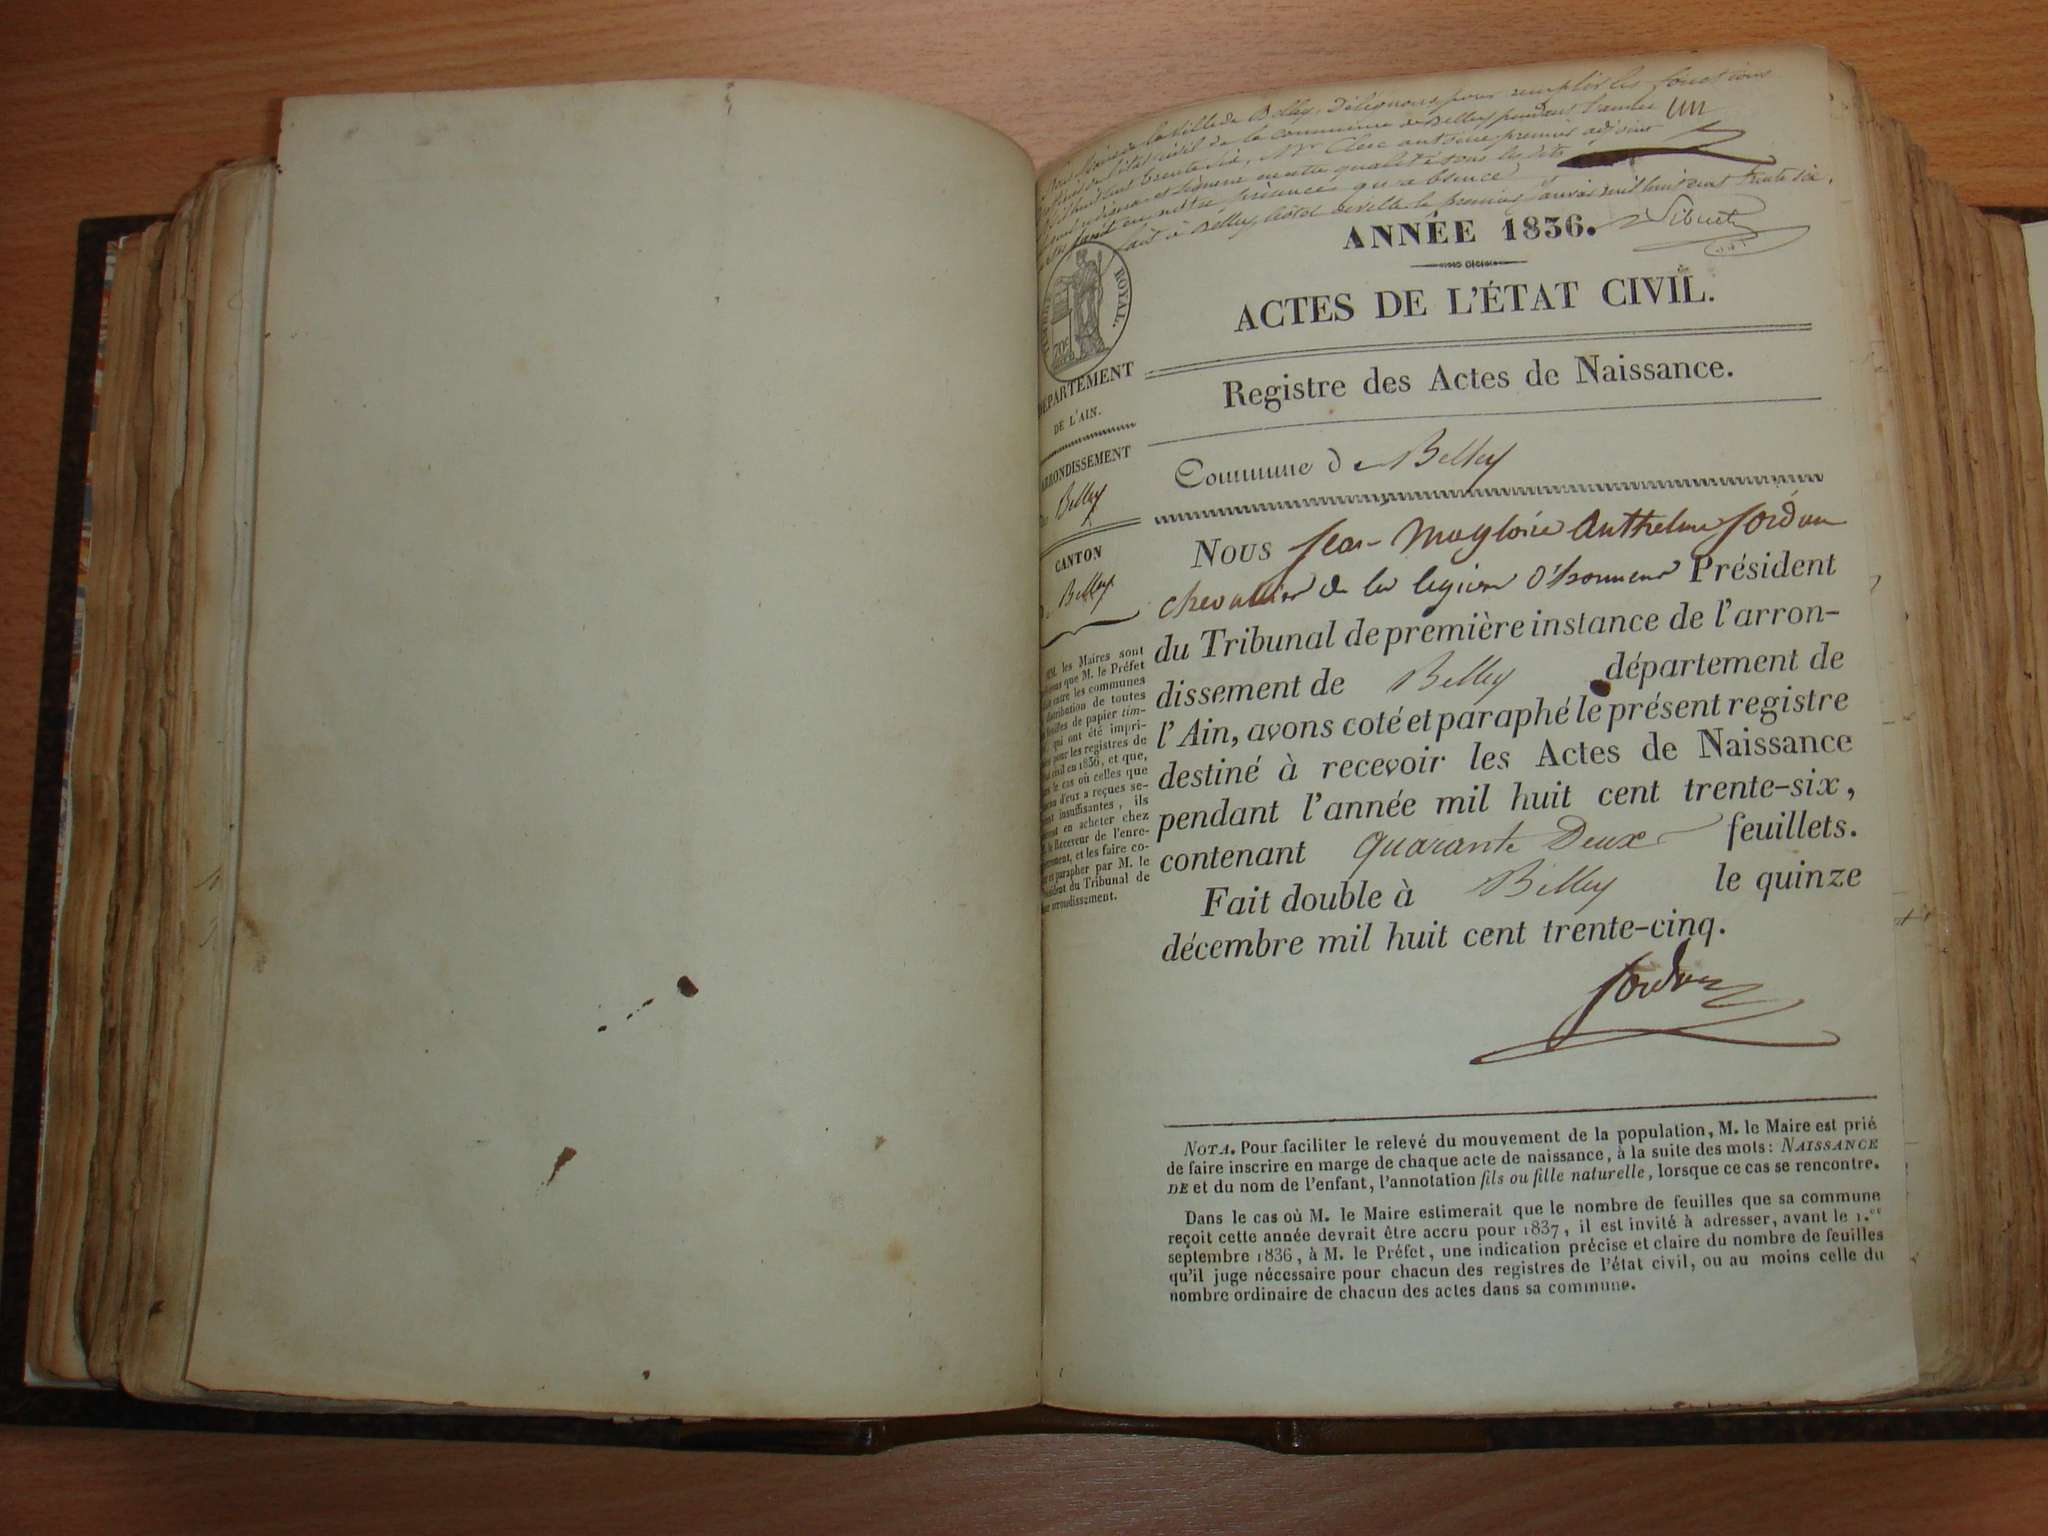 la Ville de Belley, Délégons pour remplir les fonctions
de l'état civil de la commune de Belley pendant l'année
trente six, Mr Clerc antoine premier adjoint
et signera en cette qualité tous les dits
en notre présence qu'absence
fait à Belley, hôtel de ville le premier janvier mil huit cent trente six.
un
Sibuet
ANNÉE 1836.
ACTES DE L'ÉTAT CIVIL.
Registre des Actes de Naissance.
Commune de Belley
ROYAL.
70c
DÉPARTEMENT
DE L'AIN.
ARRONDISSEMENT
Belley
CANTON
De Belley
MM. les Maires sont
que M. le Préfet
entre les communes
distribution de toutes
feuilles de papier tim-
qui ont été impri-
pour les registres de
civil en 1836, et que,
le cas où celles que
d'eux a reçues se-
insuffisantes, ils
en acheter chez
le Receveur de l'enre-
et les faire co-
et parapher par M. le
Président du Tribunal de
arrondissement.
NOUS Jean-Magloire Anthelme Jordan
chevalier de la légion d'honneur Président
du Tribunal de première instance de l'arron-
dissement de Belley département de
l'Ain, avons coté et paraphé le présent registre
destiné à recevoir les Actes de Naissance
pendant l'année mil huit cent trente-six,
contenant quarante Deux feuillets.
Fait double à Belley le quinze
décembre mil huit cent trente-cinq.
Jordan
NOTA. Pour faciliter le relevé du mouvement de la population, M. le Maire est prié
de faire inscrire en marge de chaque acte de naissance, à la suite des mots: NAISSANCE
DE et du nom de l'enfant, l'annotation fils ou fille naturelle, lorsque ce cas se rencontre.
Dans le cas où M. le Maire estimerait que le nombre de feuilles que sa commune
reçoit cette année devrait être accru pour 1837, il est invité à adresser, avant le 1.er
septembre 1836, à M. le Préfet, une indication précise et claire du nombre de feuilles
qu'il juge nécessaire pour chacun des registres de l'état civil, ou au moins celle du
nombre ordinaire de chacun des actes dans sa commune.